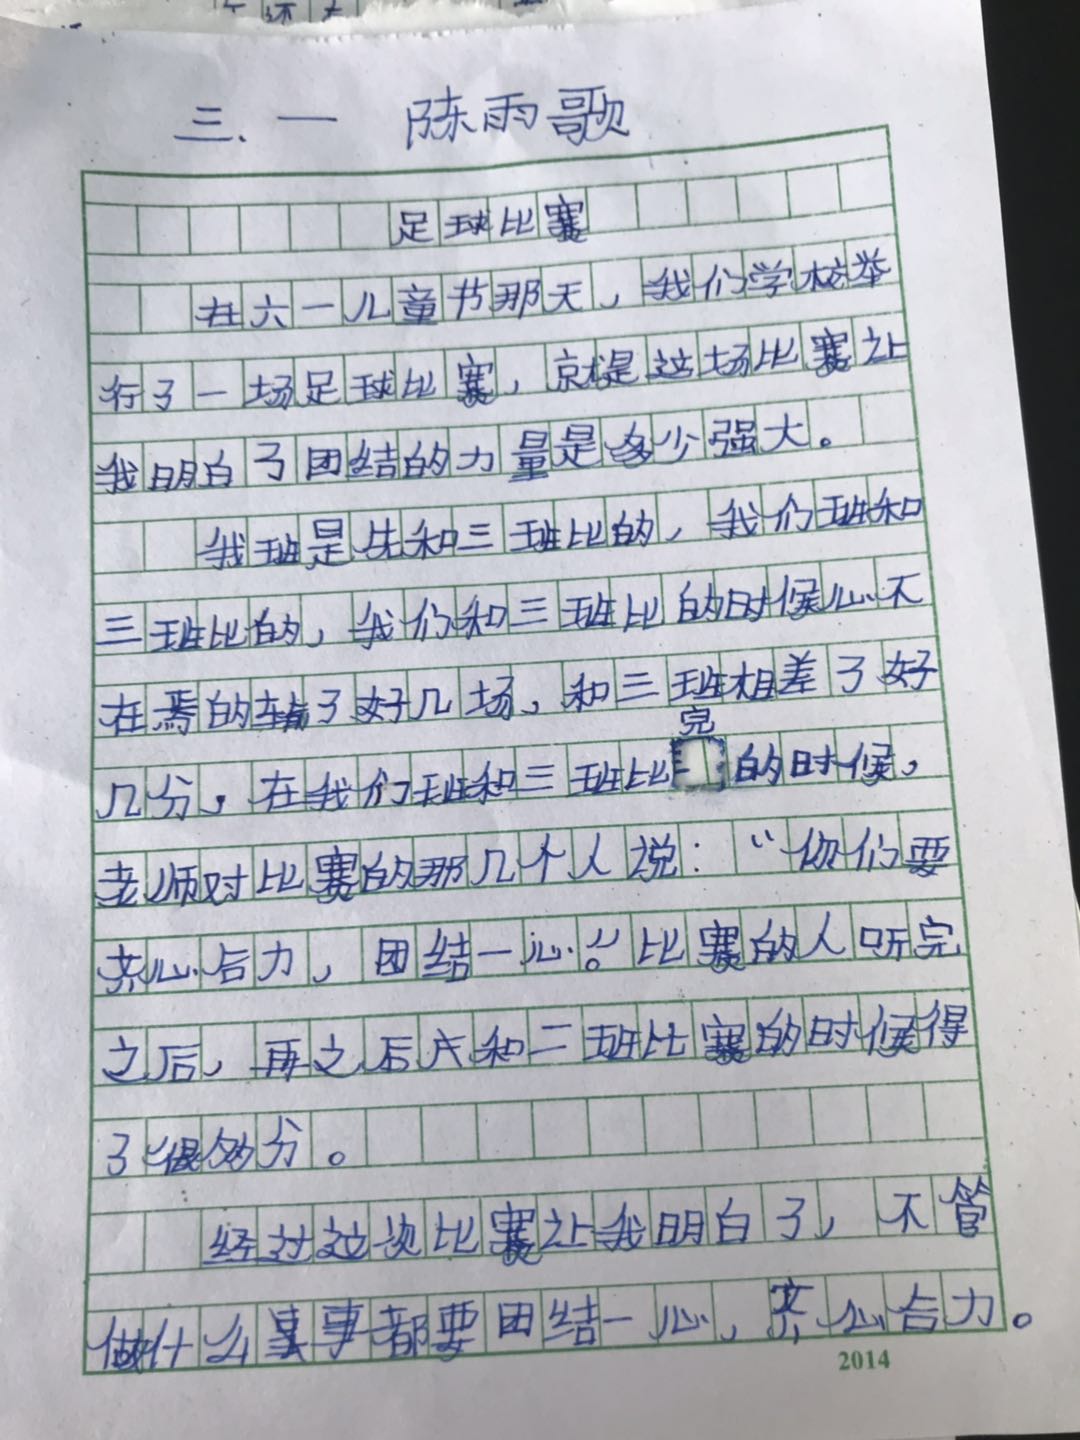 三.一 陈雨歌
足球比赛
在六一儿童节那天，我们学校举
行了一场足球比赛，就是这场比赛让
我明白了团结的力量是多少强大。
我班是先和三班比的，我们班和
三班比的，我们和三班比的时候心不
在焉的输了好几场，和三班相差了好
完
几分，在我们班和三班比 的时候，
老师对比赛的那几个人说：“你们要
齐心合力，团结一心。”比赛的人听完
之后，再之后六和二班比赛的时候得
了很多分。
经过这次比赛让我明白了，不管
做什么事事都要团结一心，齐心合力。
2014